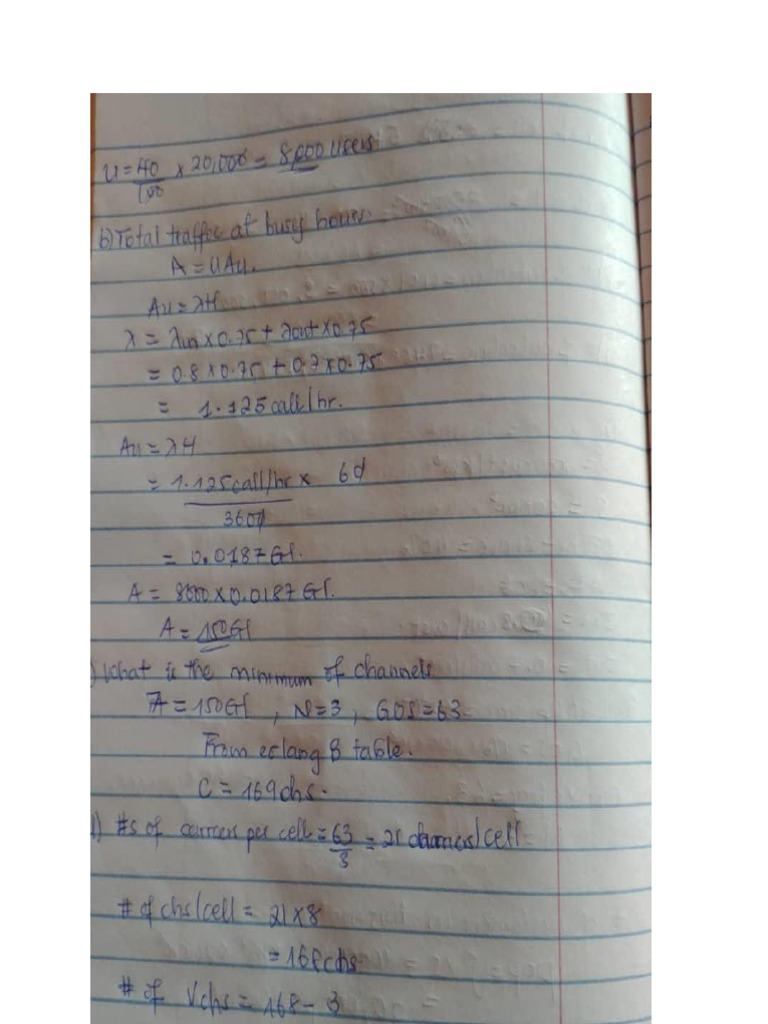 U = 40/100 × 20,000 = 8,000 users
b) Total traffic at busy hour.
A = UAu.
Au = λH
λ = λin × 0.75 + λout × 0.75
= 0.8 × 0.75 + 0.7 × 0.75
= 1.125 call/hr.
Au = λH
= 1.125 call/hr × 60
3600
= 0.0187 Erl.
A = 8000 × 0.0187 Erl.
A = 150 Erl
) What is the minimum of channels
A = 150 Erl, N = 3, GOS = 63
From erlang B table.
C = 169 chs.
) #s of carriers per cell = 63/3 = 21 /cell
# of chs/cell = 21 × 8
= 168 chs
# of Vchs = 168 - 3